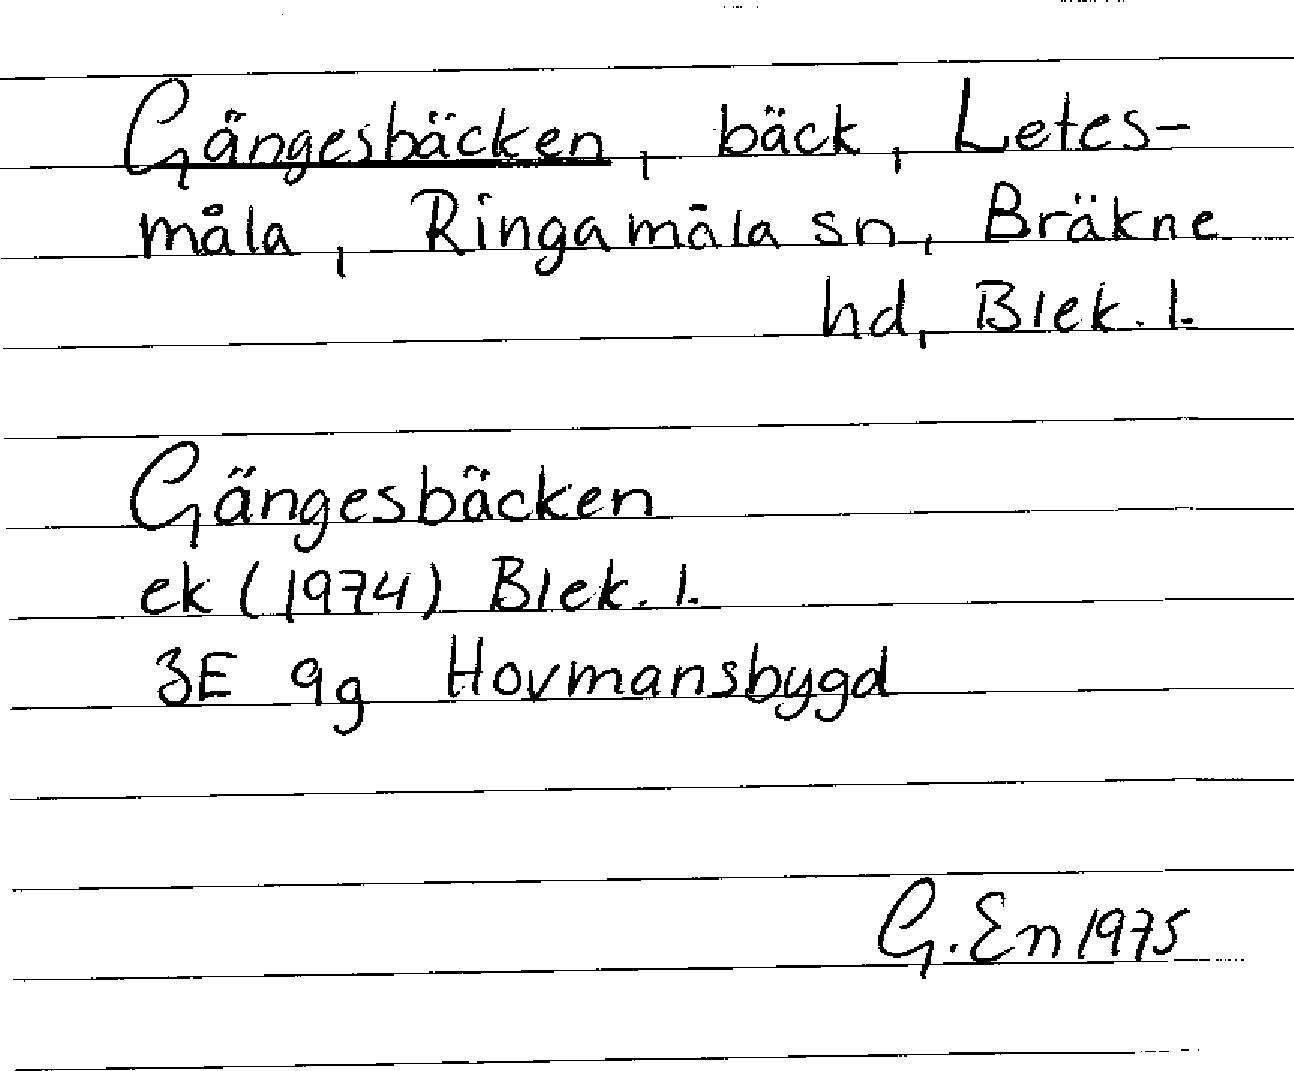 Gängesbäcken, bäck, Letes-
måla, Ringamåla sn, Bräkne
hd, Blek. l.
Gängesbäcken
ek (1974) Blek. l.
3E 9g Hovmansbygd
G. En 1975